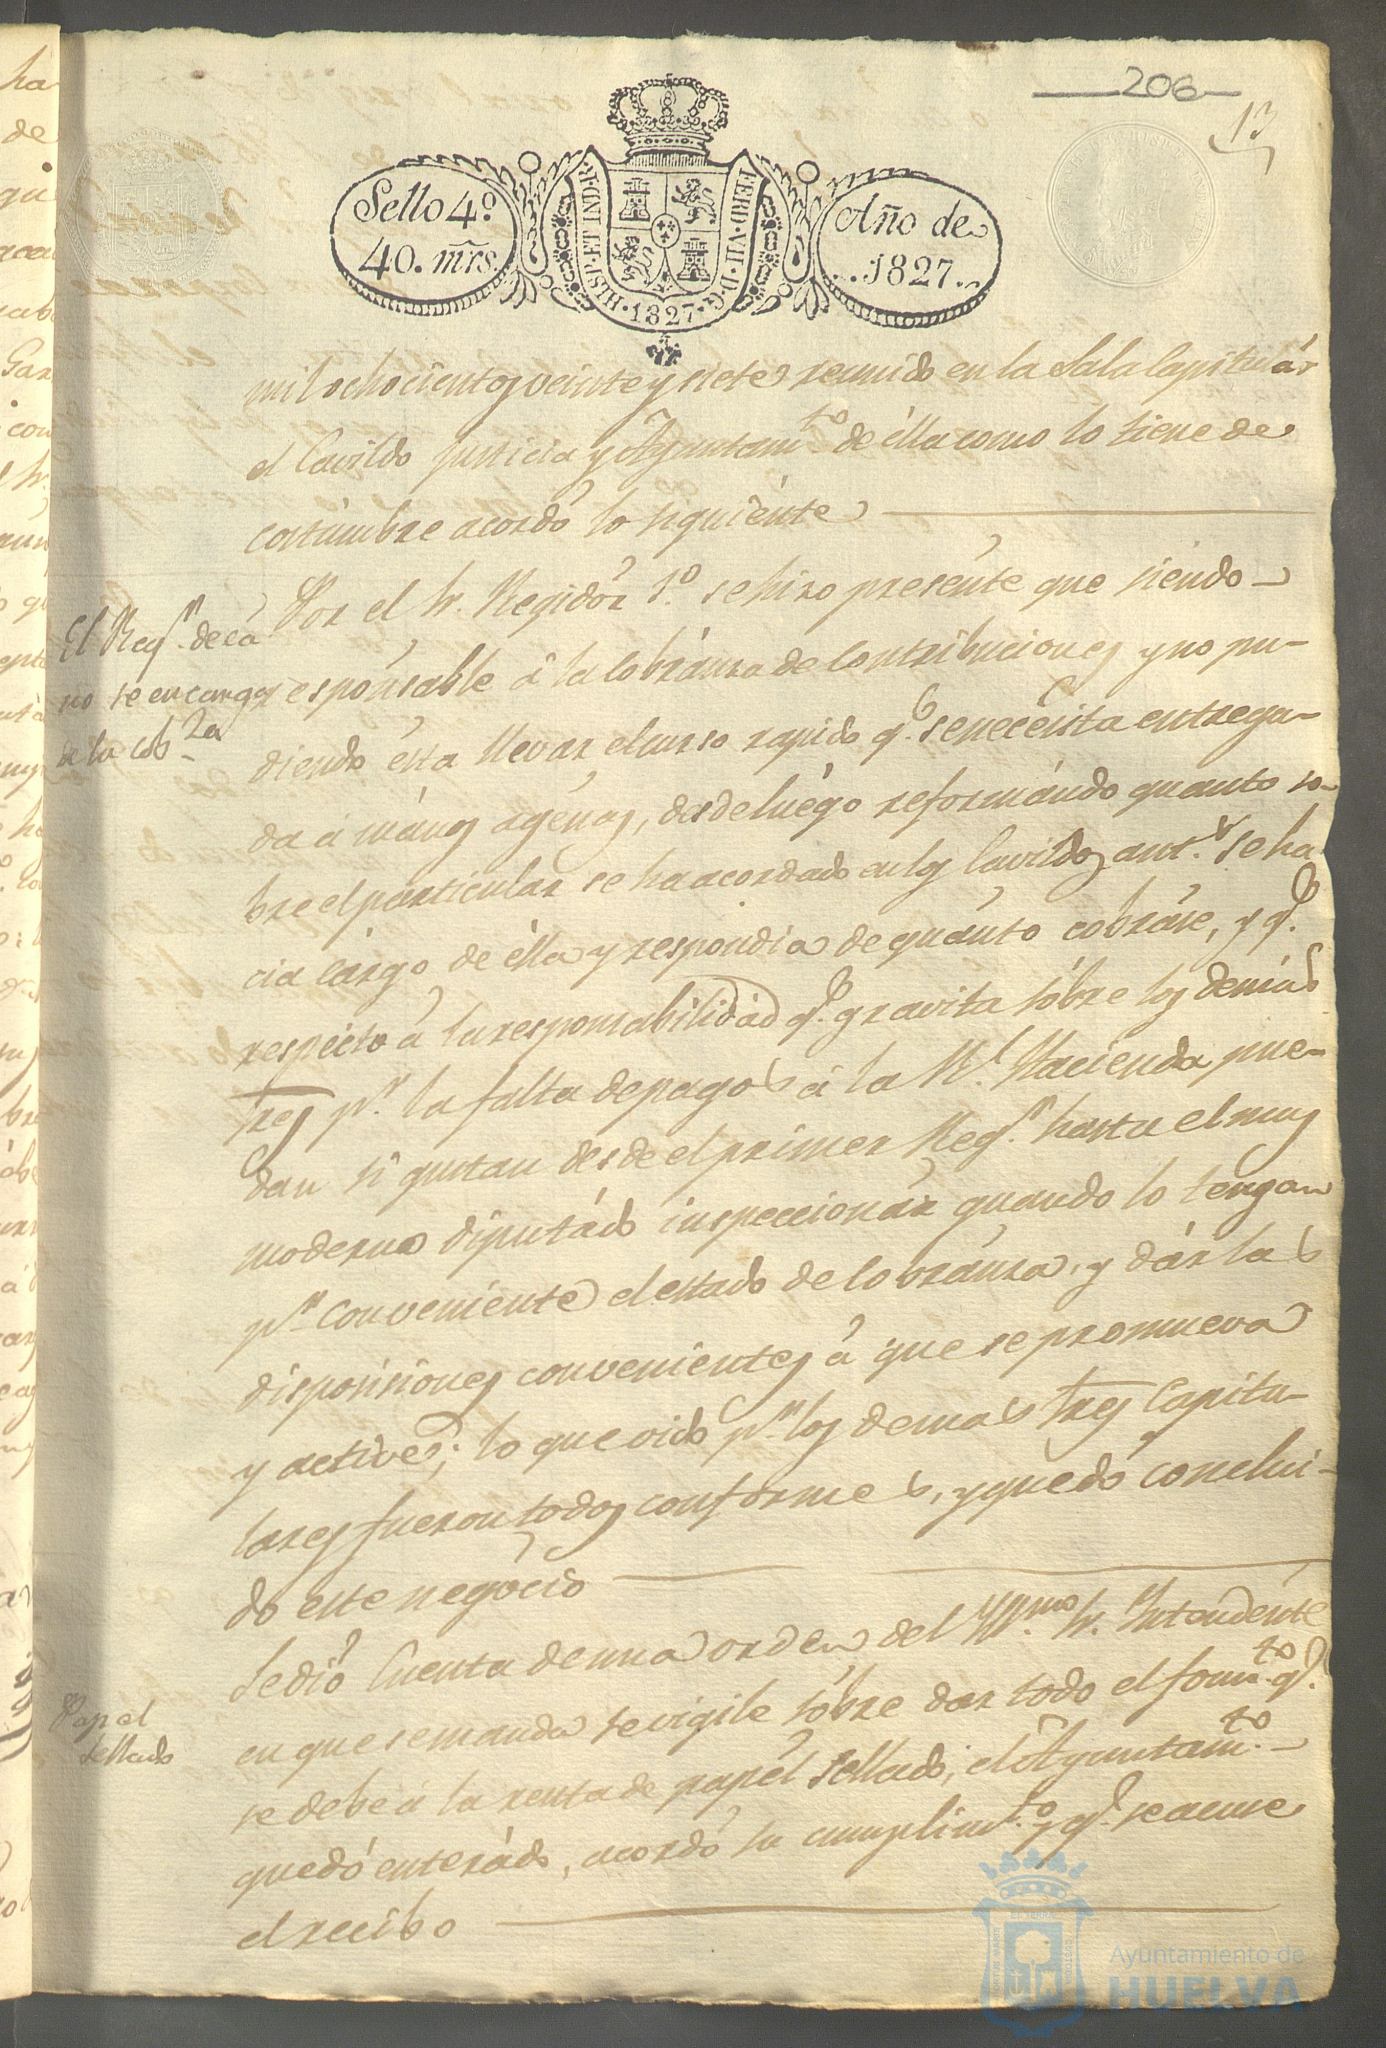 206
13
Sello 4.º
40. mrs.
HISP. ET IND. R.
FERD. VII. D. G.
1827
Año de
1827.
mil ochocientos veinte y siete reunido en la Sala Capitulár
el Cavildo Justicia y Ayuntam.to de élla como lo tiene de
costúmbre acordó lo siguiénte
Por el Sr. Regidór 1.º se hizo presénte que siéndo
responsable á la Cobránza de Contribuciones y no pu-
diendo ésta llevar el curso rapido q.e se necesita entrega-
da á mános agénas, desde luégo reformándo quanto so-
bre el particular se ha acordado en los Cavildos ant.s se ha
cia cárgo de élla y respondia de quánto cobráse, y q.e
respécto á la responsabilidád q.e gravita sóbre los demás
Sres p.r la falta de pagos á la Rl. Hacienda pue-
dan si gustan desde el primer Reg.r hasta el mas
moderno diputádo inspeccionár quando lo tengan
p.r conveniente el estado de Cobránza, y dár las
disposiciones convenientes á que se promueva
y active; lo que vido p.r los demas Sres Capitu-
lares fueron todos conformes, y quedó conclui-
do este negócio
Se dió Cuenta de una orden del Yll.mo Sr. Intendénte
en que se manda se vigile sóbre dar todo el fom.to q.e
se debe á la renta de papél Sellado; el Ayuntam.to
quedó enterádo, acordó su cumplim.to y q.e se acuse
el recibo
El Reg.r deca
no se encarga
de la cob.za
Papel
Sellado
Ayuntamiento de
HUELVA